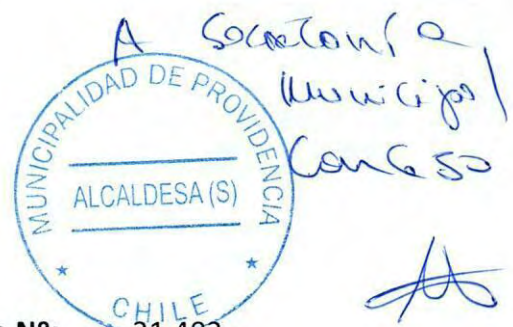 A Secretaría
Municipal
Concejo
MUNICIPALIDAD DE PROVIDENCIA
ALCALDESA (S)
CHILE
Nº